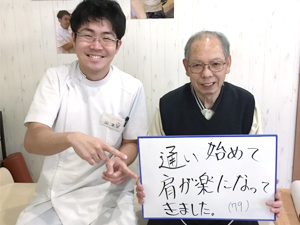 通い始めて
肩が楽になって
きました。(79)